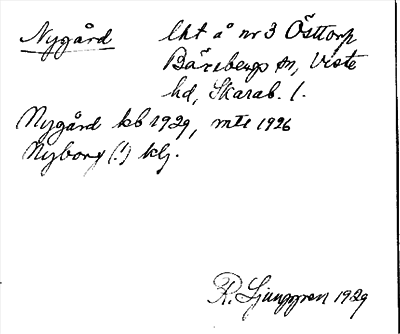 Nygård lht å nr 3 Östtorp
Bärebergs sn, Viste
hd, Skarab. l.
Nygård kb 1929, mtl 1926
Nyborg (!) klj.
R. Ljunggren 1929